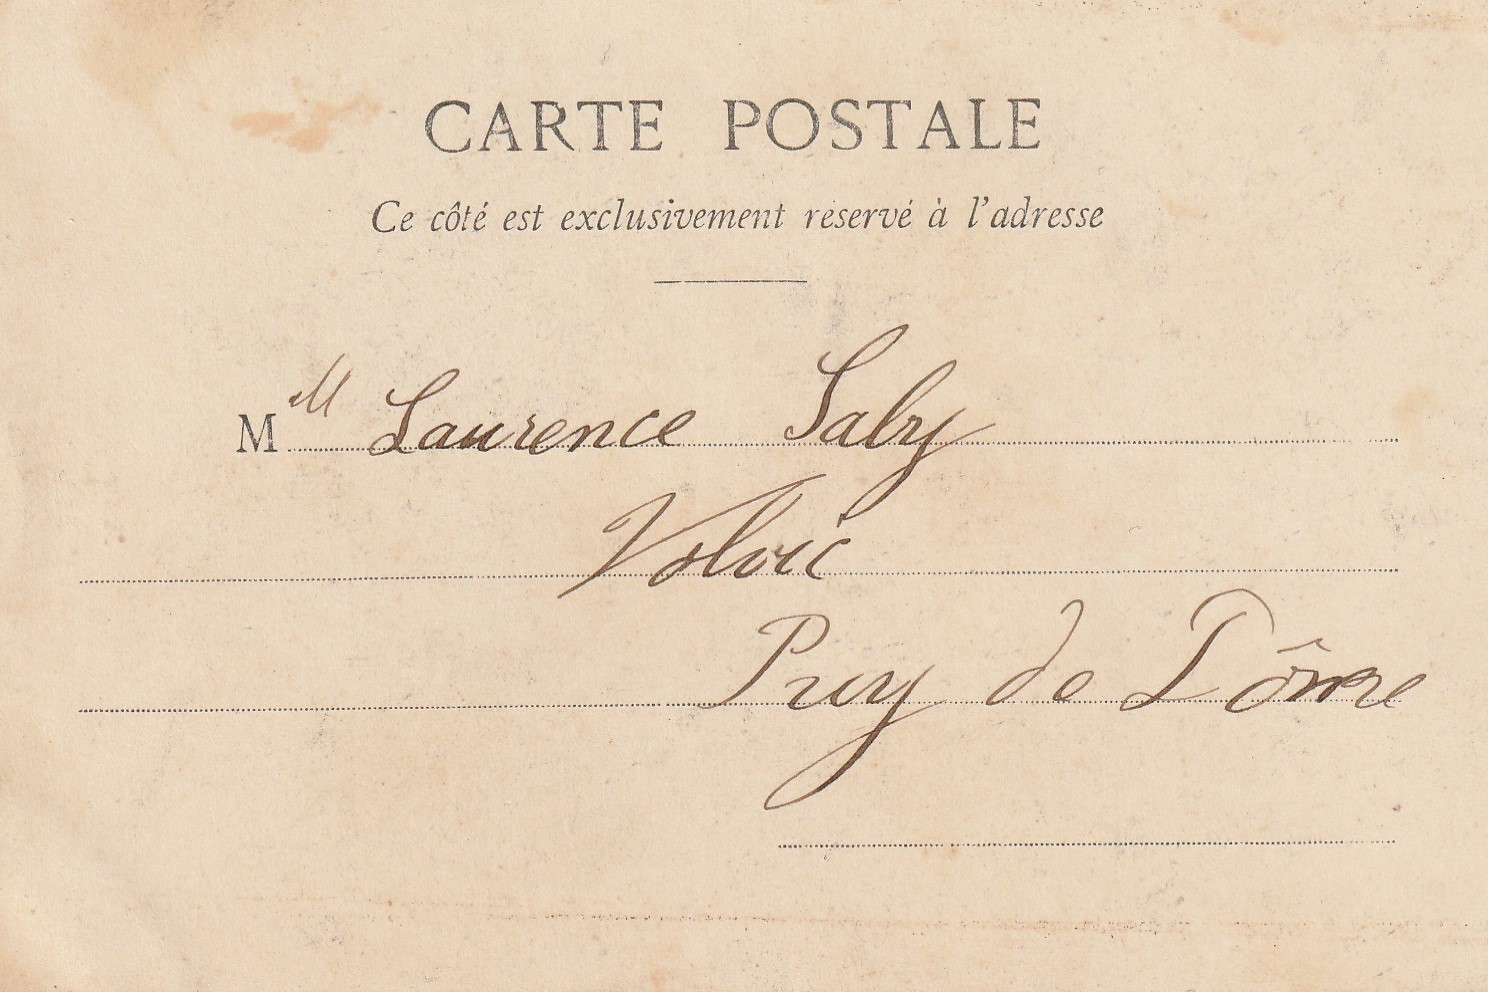 CARTE POSTALE
Ce côté est exclusivement réservé à l'adresse
Mll Laurence Saby
Volvic
Puy de Dôme